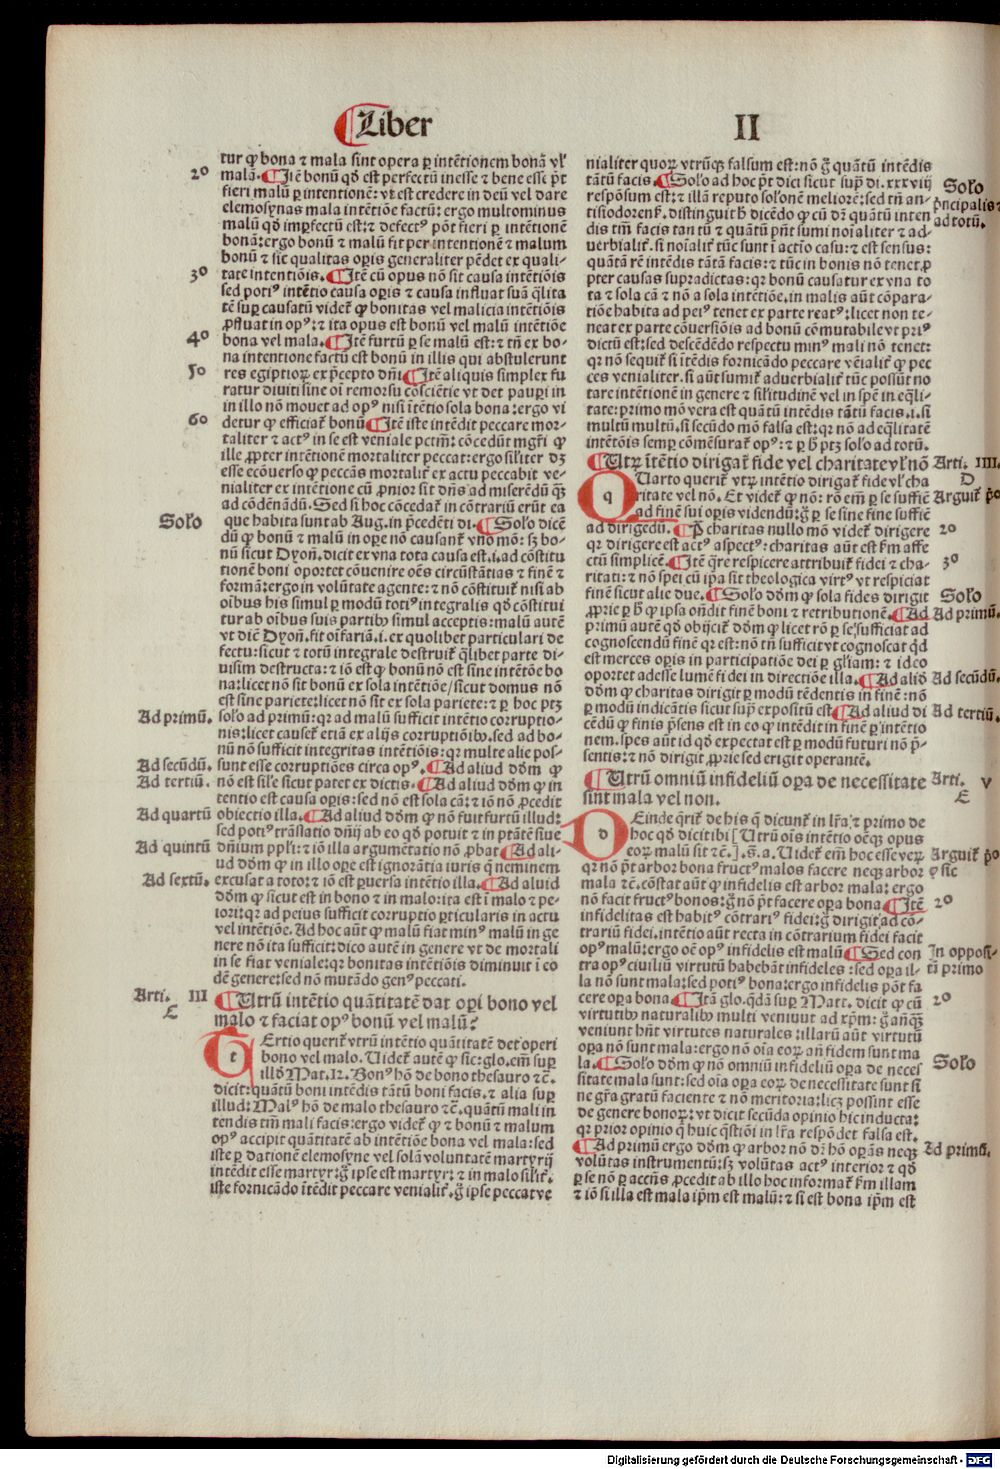 ¶Liber
II
tur ꝙ bona ⁊ mala sint opera ꝑ intētionem bonā vl'
malā. ¶Itē bonū qd est perfectū inesse ⁊ bene esse pt
fieri malū ꝑ intentionē: vt est credere in deū vel dare
elemosynas mala intētiōe factū: ergo multominus
malū qd imꝑfectū est: ⁊ defectꝰ pōt fieri ꝑ intētionē
bonā: ergo bonū ⁊ malū fit per intentionē ⁊ malum
bonū ⁊ sic qualitas oꝑis generaliter pēdet ex quali-
tate intentiōis. ¶Itē cū opus nō sit causa intētiōis
sed potiꝰ intētio causa oꝑis ⁊ causa influat suā qlita
tē suꝑ causatū videt ꝙ bonitas vel malicia intētiōis
ꝓfluat in opꝰ: ⁊ ita opus est bonū vel malū intētiōe
bona vel mala. ¶Itē furtū ꝑ se malū est: ⁊ tn ex bo-
na intentione factū est bonū in illis qui abstulerunt
res egiptioꝝ ex pcepto dni ¶Itē aliquis simplex fu
ratur diuiti sine oi remorsu cōsciētie vt det pauꝑi in
in illo nō mouet ad opꝰ nisi itētio sola bona: ergo vi
detur ꝙ efficiat bonū ¶Itē iste intēdit peccare mor-
taliter ⁊ actꝰ in se est veniale pctm: cōcedūt mgri ꝙ
ille ꝓpter intentionē mortaliter peccat: ergo siliter dꝫ
esse ecōuerso ꝙ peccās mortalit ex actu peccabit ve-
nialiter ex intētione cū ꝓnior sit dns ad miserēdū qꝫ
ad cōdēnādū. Sed si hoc cōcedat in cōtrariū erūt ea
que habita sunt ab Aug. in pcedēti di. ¶Solo dicē
dū ꝙ bonū ⁊ malū in oꝑe nō causant vno mō: sꝫ bo-
nū sicut Dyon. dicit ex vna tota causa est .i. ad cōstitu
tionē boni oportet cōuenire oēs circūstātias ⁊ finē ⁊
formā: ergo in volūtate agente: ⁊ nō cōstituit nisi ab
oibus his simul ꝑ modū totiꝰ integralis qd cōstitui
tur ab oibus suis partibꝫ simul acceptis: malū autē
vt diē Dyon. fit oifariā .i. ex quolibet particulari de
fectu: sicut ⁊ totū integrale destruit qlibet parte di-
uisim destructa: ⁊ iō est ꝙ bonū nō est sine intētōe bo
na: licet nō sit bonū ex sola intētiōe / sicut domus nō
est sine pariete: licet nō sit ex sola pariete: ⁊ ꝑ hoc ptꝫ
solo ad primū: qr ad malū sufficit intētio corruptio-
nis: licet causet etiā ex alijs corruptiōibꝫ. sed ad bo-
nū nō sufficit integritas intētiōis: qr multe alie pos-
sunt esse corruptiōes circa opꝰ. ¶Ad aliud dōm ꝙ
nō est sile sicut patet ex dictis. ¶Ad aliud dōm ꝙ in
tentio est causa oꝑis: sed nō est sola cā: ⁊ iō nō ꝓcedit
obiectio illa. ¶Ad aliud dōm ꝙ nō fuit furtū illud:
sed potiꝰ trāslatio dnij ab eo qd potuit ⁊ in ptātē siue
dnium ppli: ⁊ iō illa argumētatio nō ꝓbat ¶Ad ali-
ud dōm ꝙ in illo oꝑe est ignorātia iuris q neminem
excusat a toto: ⁊ iō est ꝑuersa intētio illa. ¶Ad aluid
dōm ꝙ sicut est in bono ⁊ in malo: ita est i malo ⁊ pe-
iori: qr ad peius sufficit corruptio ꝑticularis in actu
vel intētiōe. Ad hoc aūt ꝙ malū fiat minꝰ malū in ge
nere nō ita sufficit: dico autē in genere vt de mortali
in se fiat veniale: qr bonitas intētiōis diminuit i eo
dē genere: sed nō mutādo genꝰ peccati.
¶Utrū intētio quātitatē dat oꝑi bono vel
malo ⁊ faciat opꝰ bonū vel malū?
Tertio querit vtrū intētio quātitatē det operi
bono vel malo. Uidet autē ꝙ sic: glo. em suꝑ
illd Mat. 12. Bonꝰ hō de bono thesauro ⁊c.
dicit: quātū boni intēdis tātū boni facis. ⁊ alia suꝑ
illud: Malꝰ hō de malo thesauro ⁊c. quātū mali in
tendis tm mali facis: ergo videt ꝙ ⁊ bonū ⁊ malum
opꝰ accipit quātitatē ab intētiōe bona vel mala: sed
iste ꝑ dationē elemosyne vel solā voluntatē martyrij
intēdit esse martyr: g ipse est martyr: ⁊ in malo silit.
iste fornicādo itēdit peccare venialit. g ipse peccat ve
nialiter quoꝝ vtrūqꝫ falsum est: nō g quātū intēdis
tātū facis. ¶Solo ad hoc pt dici sicut sup di. xxxviij
respōsum est: ⁊ illā reputo solonē meliorē: sed tn an-
tisiodorens. distinguit h dicēdo ꝙ cū dr quātū inten
dis tm facis tantū ⁊ quātū pnt sumi noialiter ⁊ ad-
uerbialit. si noialit tūc sunt i actio casu: ⁊ est sensus:
quātā rē intēdis tātā facis: ⁊ tūc in bonis nō tenet ꝓ
pter causas supradictas: qr bonū causatur ex vna to
ta ⁊ sola cā ⁊ nō a sola intētiōe. in malis aūt cōpara-
tiōe habita ad peiꝰ tenet ex parte reatꝰ: licet non te-
neat ex parte cōuersiōis ad bonū cōmutabile vt priꝰ
dictū est: sed descēdēdo respectu minꝰ mali nō tenet:
qr nō sequit si itēdis fornicādo peccare vēialit ꝙ pec
ces venialiter. si aūt sumit aduerbialit tūc possūt no
tare intētionē in genere ⁊ silitudinē vel in spē in eqli-
tate: primo mō vera est quātū intēdis tātū facis .i. si
multū multū. si secūdo mō falsa est: qr nō ad eqlitatē
intētōis semꝑ cōmēsurat opꝰ: ⁊ ꝑ h ptꝫ solo ad totū.
¶Utꝝ itētio dirigat fide vel charitate vl nō
Quarto querit vtꝝ intētio dirigat fide vl cha
ritate vel nō. Et videt ꝙ nō: rō em ꝑ se suffiē
ad finē sui oꝑis videndū: g ꝑ se sine fine suffiē
ad dirigēdū. ¶P charitas nullo mō videt dirigere
qr dirigere est actꝰ aspectꝰ: charitas aūt est fm affe
ctū simplicē. ¶Itē qre respicere attribuit fidei ⁊ cha-
ritati: ⁊ nō spei cū ipa sit theologica virtꝰ vt respiciat
finē sicut alie due. ¶Solo dōm ꝙ sola fides dirigit
ꝓprie ꝑ h ꝙ ipsa ondit finē boni ⁊ retributionē. ¶Ad
primū autē qd obijcit dōm ꝙ licet rō ꝑ se sufficiat ad
cognoscendū finē qr est: nō tn sufficit vt cognoscat qd
est merces oꝑis in participatiōe dei ꝑ gliam: ⁊ ideo
oportet adesse lumē fidei in directiōe illa. ¶Ad aliō
dōm ꝙ charitas dirigit ꝑ modū tēdentis in finē: nō
ꝑ modū indicātis sicut sup expositū est ¶Ad aliud di
cēdū ꝙ finis psens est in eo ꝙ intēdit in finē ꝑ intētio
nem. spes aūt id qd expectat est ꝑ modū futuri nō p-
sentis: ⁊ nō dirigit ꝓprie sed erigit operantē.
¶Utrū omniū infideliū oꝑa de necessitate
sint mala vel non.
Deinde qrit de his q dicunt in lra, ⁊ primo de
hoc qd dicit ibi [Utrū ois intētio oēqꝫ opus
eoꝝ malū sit ⁊c.]. s. a. Uidet em hoc esse veꝝ
qr nō pt arbor bona fructꝰ malos facere neqꝫ arbor
mala ⁊c. cōstat aūt ꝙ infidelis est arbor mala: ergo
nō facit fructꝰ bonos: g nō pt facere oꝑa bona ¶Itē
infidelitas est habitꝰ cōtrariꝰ fidei: g dirigit ad cō-
trariū fidei. intētio aūt recta in cōtrarium fidei facit
opꝰ malū: ergo oē opꝰ infidelis est malū ¶Sed con
tra opꝰ ciuiliū virtutū habebāt infideles: sed oꝑa il-
la nō sunt mala: sed potiꝰ bona: ergo infidelis pōt fa
cere oꝑa bona ¶Itā glo. qdā suꝑ Matt. dicit ꝙ cū
virtutibꝫ naturalibꝫ multi veniuut ad xpm: g anqꝫ
veniunt hnt virtutes naturales: illarū aūt virtutū
oꝑa nō sunt mala: ergo nō oia eoꝝ an fidem sunt ma
la. ¶Solo dōm ꝙ nō omniū infideliū oꝑa de neces
sitate mala sunt: sed oia oꝑa eoꝝ de necessitate sunt si
ne gra gratū faciente ⁊ nō meritoria: licꝫ possint esse
de genere bonoꝝ: vt dicit secūda opinio hic inducta:
qr prior opinio q huic qstiōi in lra respōdet falsa est.
¶Ad primū ergo dōm ꝙ arbor nō dr hō oꝑans neqꝫ
volūtas instrumentū: sꝫ volūtas actꝰ interior ⁊ qd
ꝑ se nō ꝑ accns ꝓcedit ab illo hoc informat fm illam
⁊ iō si illa est mala ipm est malū: ⁊ si est bona ipm est
20
30
40
50
60
Solo
Ad primū.
Ad secūdū.
Ad tertiū.
Ad quartū
Ad quintū
Ad sextū.
Arti. III
E
Solo
pncipalis
ad totū.
Arti. IIII.
D
Arguit po
20
30
Solo
Ad primū.
Ad secūdū.
Ad tertiū.
Arti. V
E
Arguit po
ꝙ sic
20
In opposi-
tū primo
20
Solo
Ad primū.
Digitalisierung gefördert durch die Deutsche Forschungsgemeinschaft - DFG